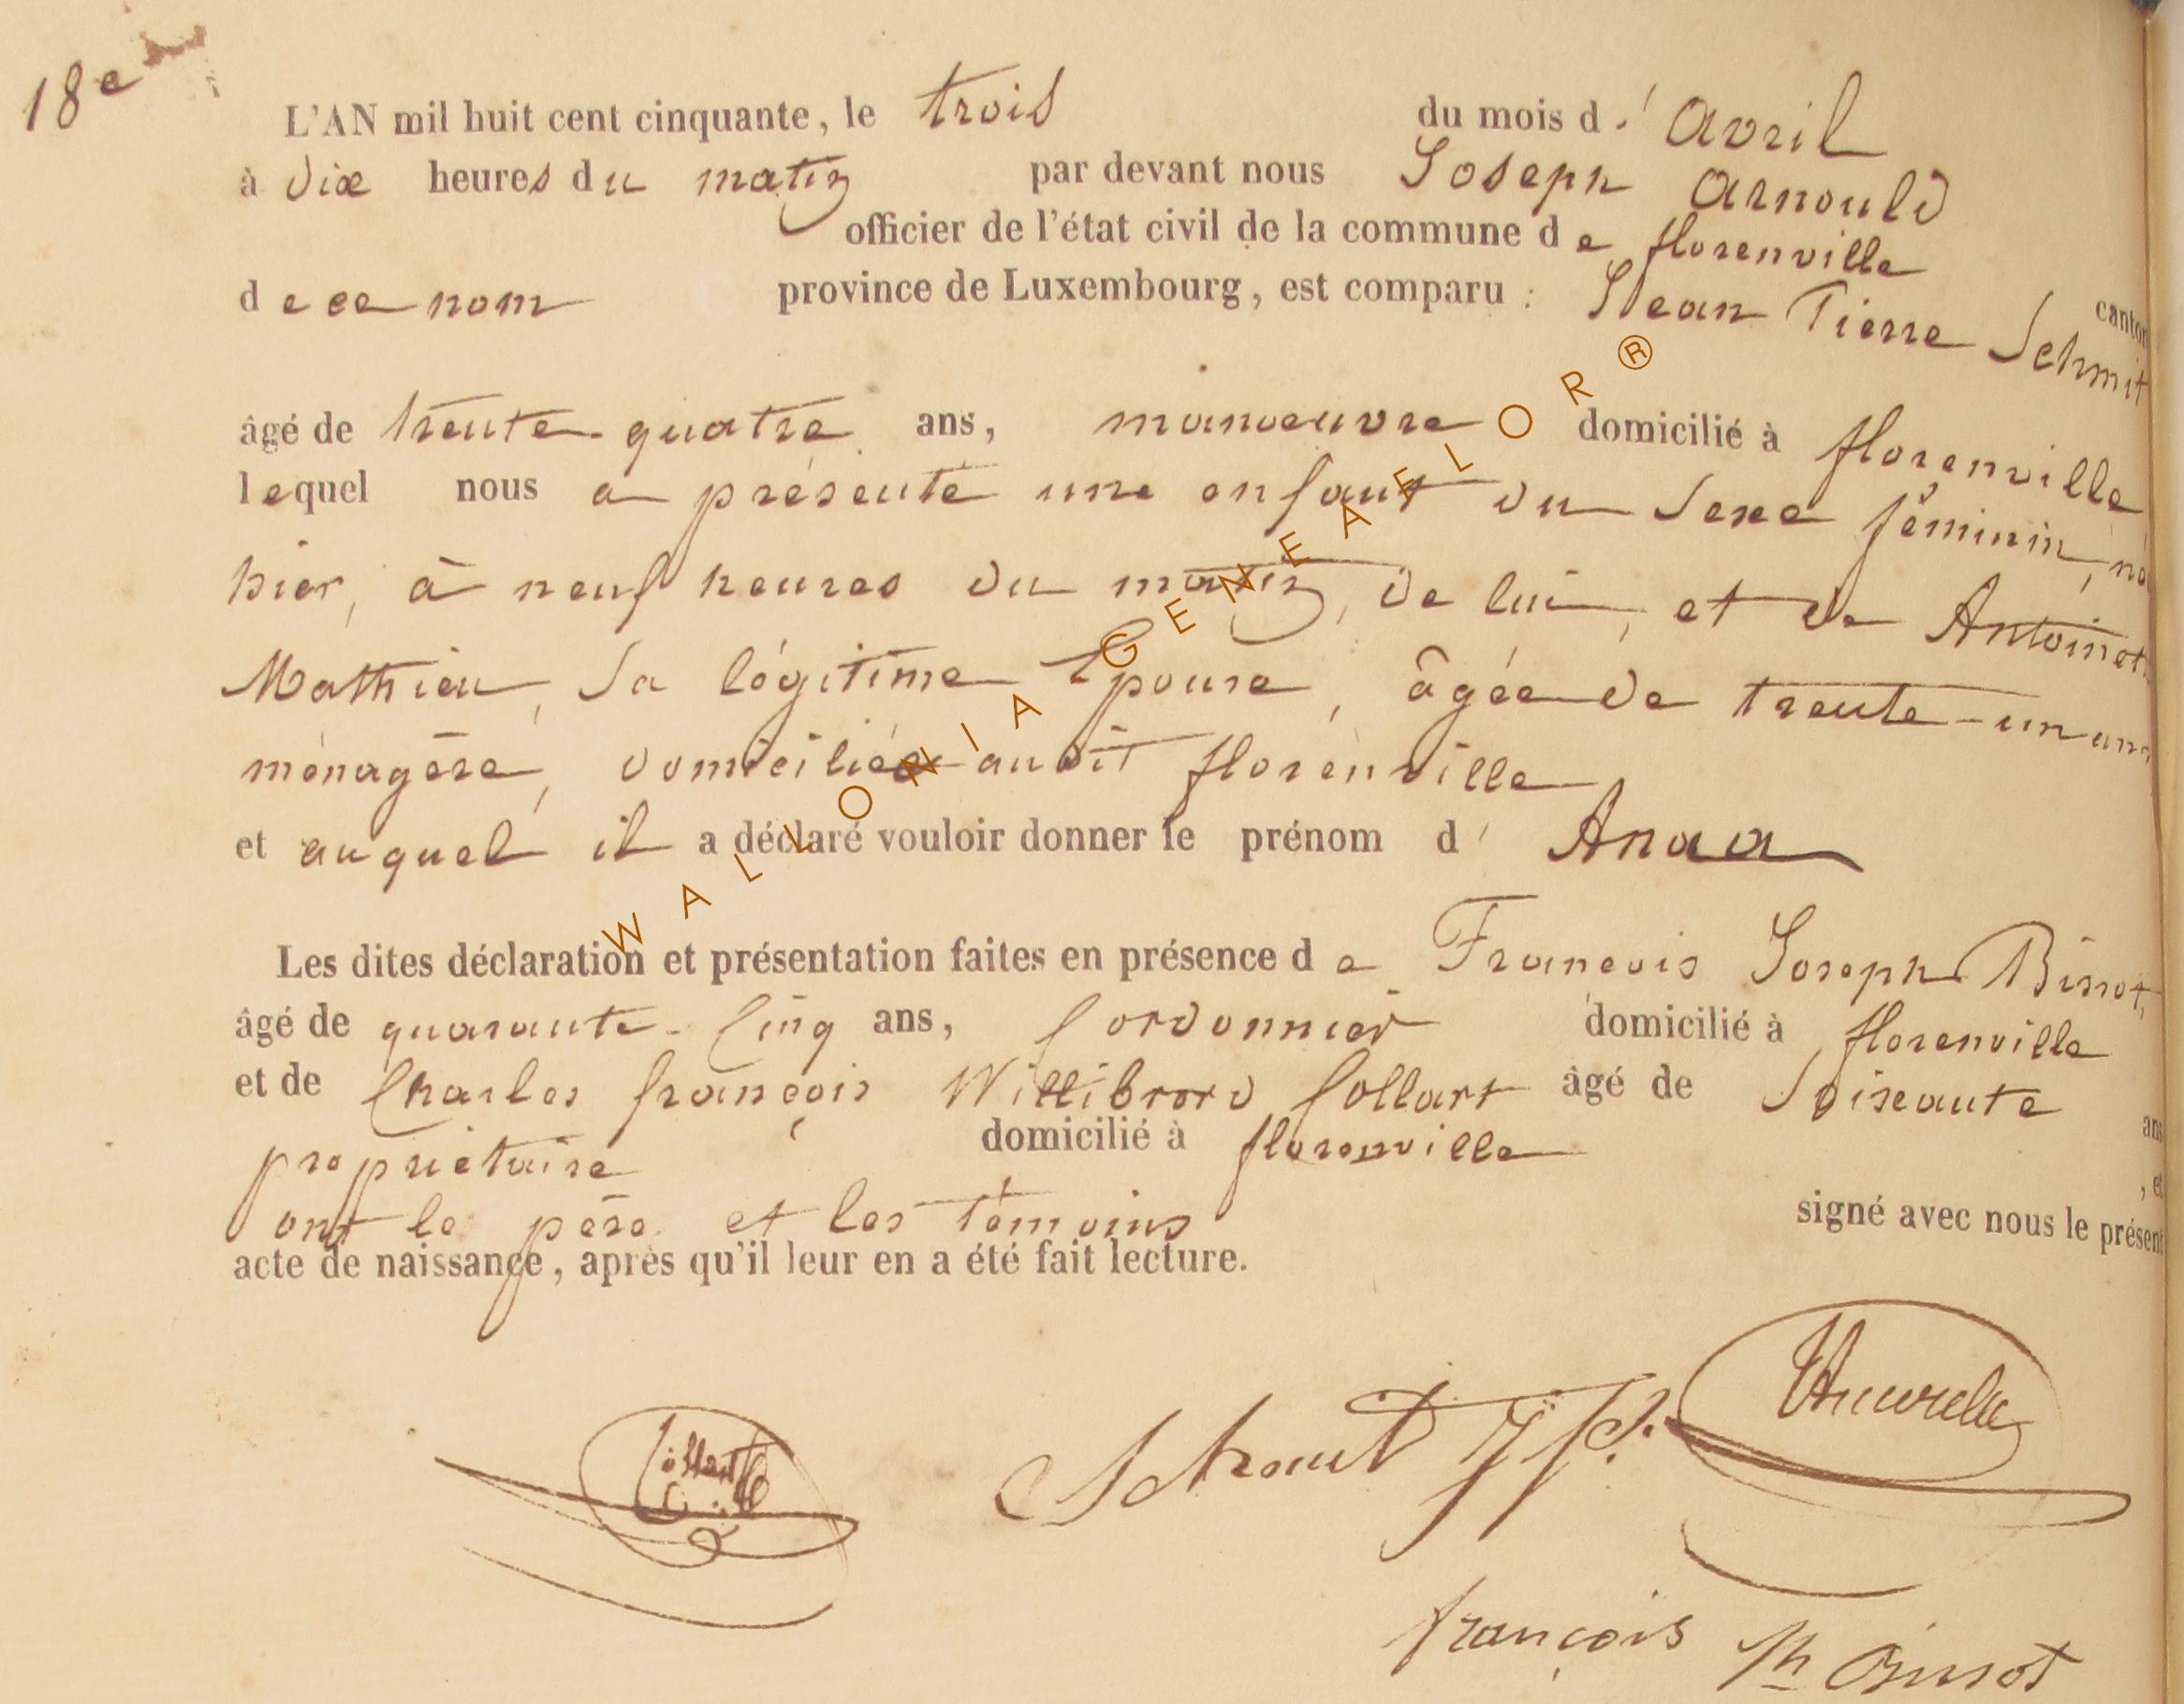 18e
L'AN mil huit cent cinquante, le trois du mois d' avril
à dix heures du matin par devant nous Joseph Arnould
officier de l'état civil de la commune de florenville canton
de ce nom province de Luxembourg, est comparu : Jean Pierre Schmit
âgé de trente-quatre ans, manoeuvre domicilié à florenville
lequel nous a présenté une enfant du sexe féminin, né
hier, à neuf heures du matin, de lui, et de Antoinet
Mathieu, sa légitime Epouse, âgée de trente-un ans,
ménagère, domiciliée audit florenville
et auquel il a déclaré vouloir donner le prénom d' Anna
Les dites déclaration et présentation faites en présence de François Joseph Bissot,
âgé de quarante-Cinq ans, Cordonnier domicilié à florenville
et de Charles françois Willibrord Collart âgé de Soixante ans
propriétaire domicilié à florenville , et
ont le père et les témoins signé avec nous le présent
acte de naissance, après qu'il leur en a été fait lecture.
Collart
françois Bissot
WALLONIA GENEAFLOR ®